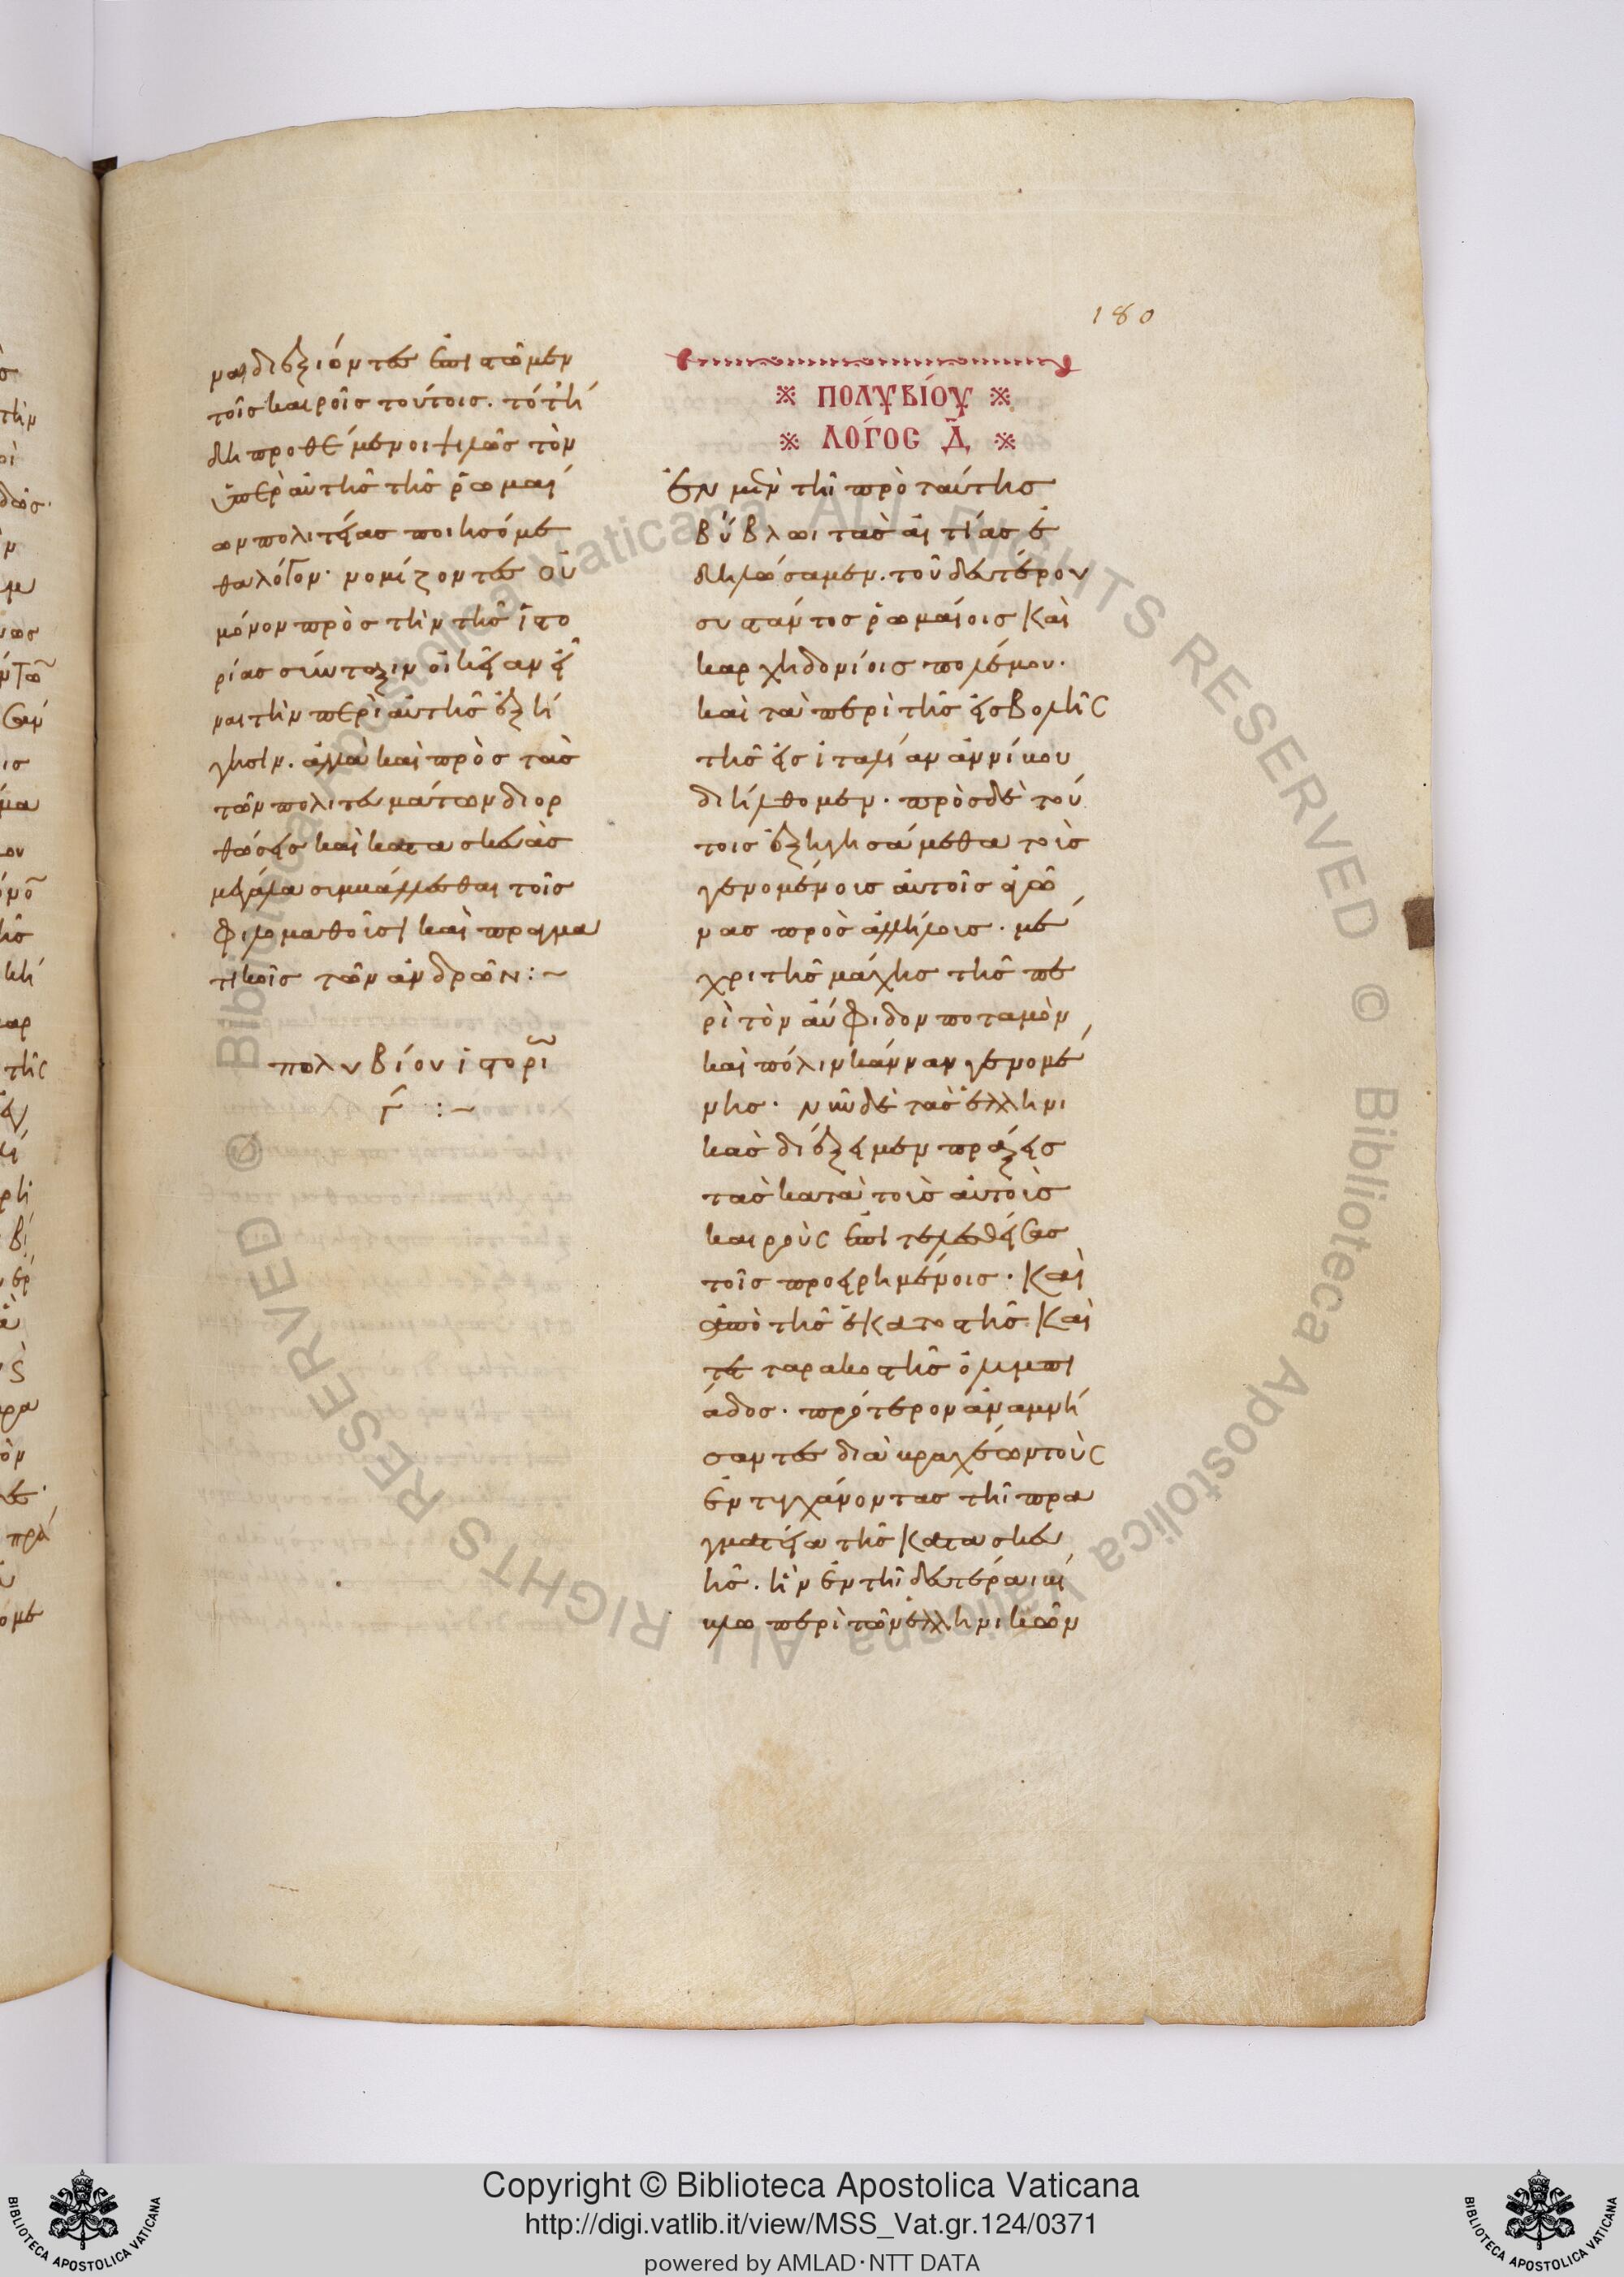 180
ναι διεξιόντες ἐπιστῶμεν
τοῖς καιροῖς τούτοις. τὸ τή
δη προθέμενοι ψιλῶς τὸν
ὑπὲρ αὐτῆς τῆς ῥωμαί
ων πολιτείας ποιησόμε
θα λόγον· νομίζοντες οὐ
μόνον πρὸς τὴν τῆς ἱστο
ρίας σύνταξιν οἰκείαν εἶ
ναι τὴν περὶ αὐτῆς ἐξή
γησιν. ἀλλὰ καὶ πρὸς τὰς
τῶν πολιτευμάτων διορ
θώσεις καὶ κατασκευὰς
μεγάλα συμβάλλεσθαι τοῖς
φιλομαθοῦσι καὶ πραγμα
τικοῖς τῶν ἀνδρῶν:~
πολυβίου ἱστορι
γ :~
※ ΠΟΛΥΒΙΟΥ ※
※ ΛΟΓΟΣ Δ ※
Ἐν μὲν τῆι πρὸ ταύτης
βύβλωι τὰς αἰτίας ἐ
δηλώσαμεν. τοῦ δευτέρου
συστάντος ῥωμαίοις καὶ
καρχηδονίοις πολέμου.
καὶ τὰ περὶ τῆς εἰσβολῆς
τῆς εἰς ἰταλίαν ἀννίβου
διήλθομεν. πρὸς δὲ τού
τοις ἐξηγησάμεθα τοὺς
γενομένους αὐτοῖς ἀγῶ
νας πρὸς ἀλλήλους. μέ
χρι τῆς μάχης τῆς πε
ρὶ τὸν αὔφιδον ποταμὸν
καὶ πόλιν κάνναν γενομέ
νης. νῦν δὲ τὰς ἑλληνι
κὰς διέξειμεν πράξεις
τὰς κατὰ τοὺς αὐτοὺς
καιροὺς ἐπιτελεσθείσας
τοῖς προειρημένοις. καὶ
ἀπὸ τῆς ἑκατοστῆς καὶ
τεταρακοστῆς ὀλυμπι
άδος. πρότερον ἀναμνή
σαντες διὰ βραχέων τοὺς
ἐντυγχάνοντας τῆι πρα
γματείᾳ τῆς κατασκευ
ῆς. ἣν ἐν τῆι δευτέραι βί
βλω περὶ τῶν ἑλληνικῶν
Copyright © Biblioteca Apostolica Vaticana
http://digi.vatlib.it/view/MSS_Vat.gr.124/0371
powered by AMLAD·NTT DATA